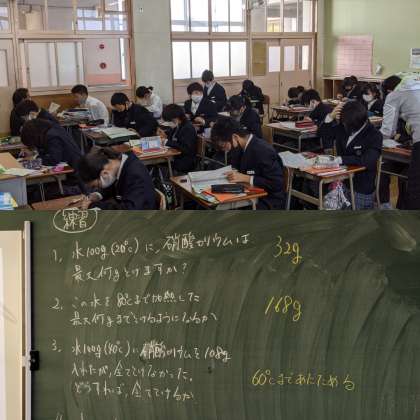 練習
1. 水100g(20℃)に、硝酸カリウムは
最大何gとけますか?
32g
2. この水を80℃まで加熱した
最大何gまでとけるようになるか
168g
3. 水100g(40℃)に硝酸カリウムを108g
入れたが、全てとけなかった。
どうすれば、全てとけるか
60℃まであたためる